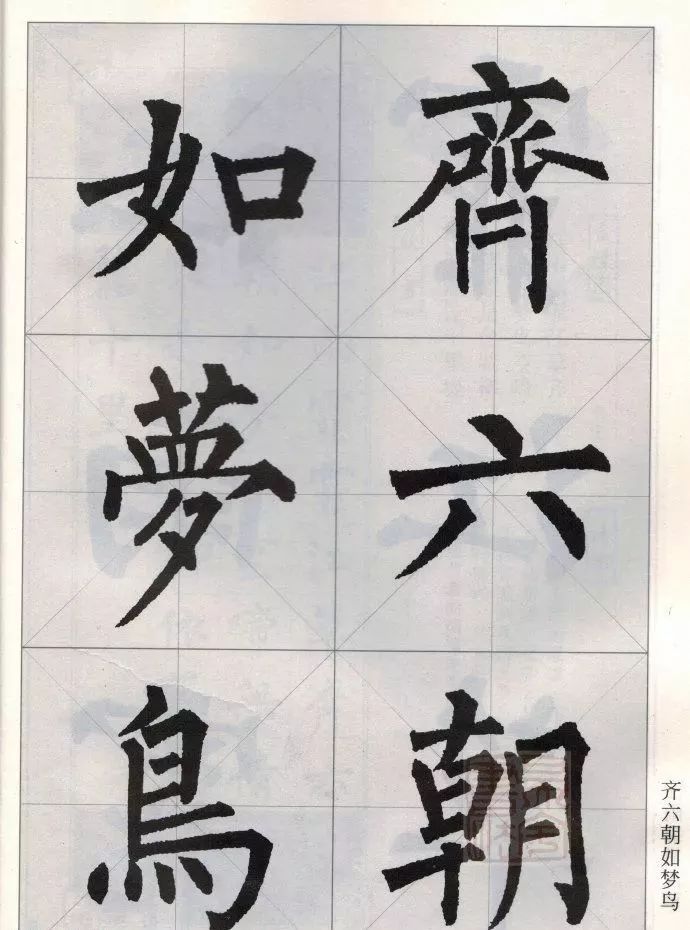 齊六朝
如夢鳥
齐六朝如梦鸟